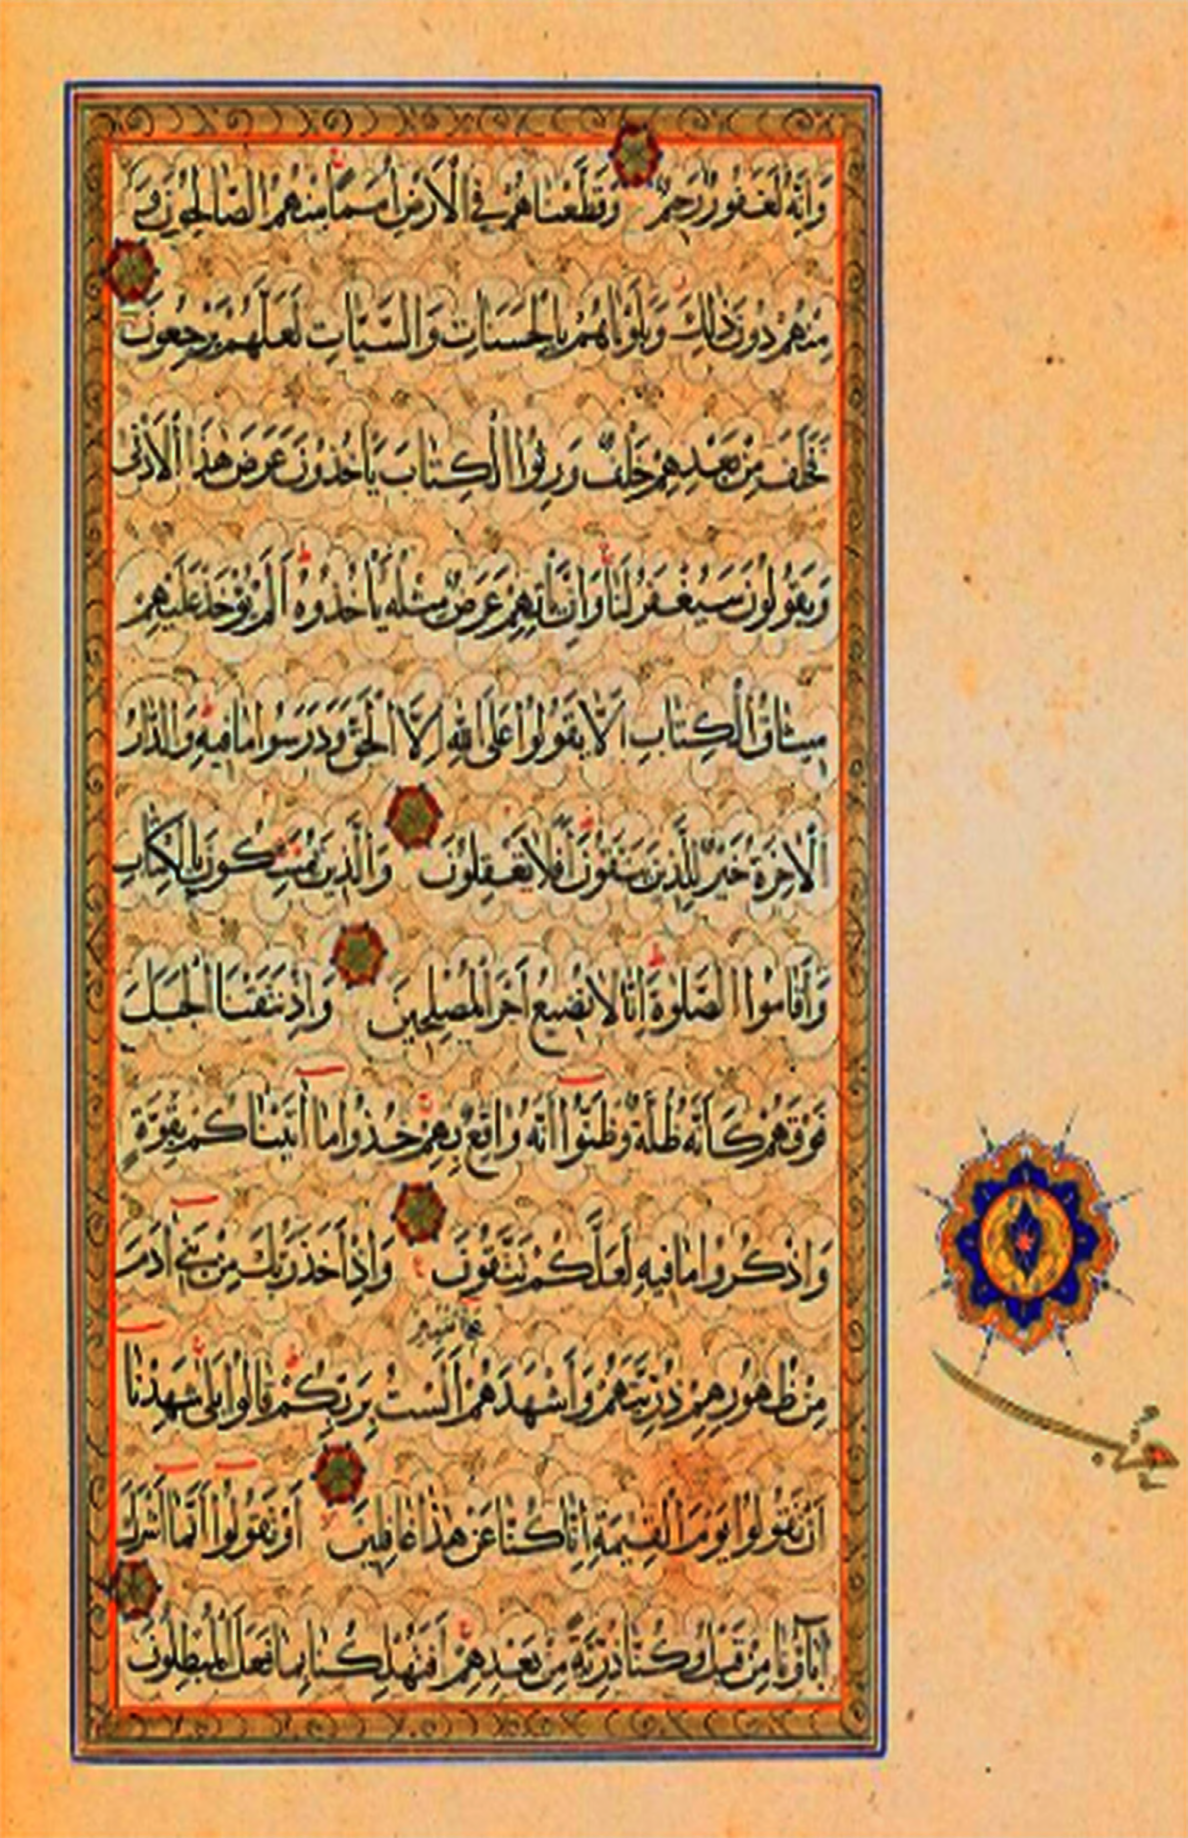 وَاِنَّهُ لَغَفُورٌ رَحِيمٌ وَقَطَّعْنَاهُمْ فِي الْاَرْضِ اُمَمًا مِنْهُمُ الصَّالِحُونَ وَ
مِنْهُمْ دُونَ ذٰلِكَ وَبَلَوْنَاهُمْ بِالْحَسَنَاتِ وَالسَّيِّاٰتِ لَعَلَّهُمْ يَرْجِعُونَ
فَخَلَفَ مِنْ بَعْدِهِمْ خَلْفٌ وَرِثُوا الْكِتَابَ يَاْخُذُونَ عَرَضَ هٰذَا الْاَدْنٰى
وَيَقُولُونَ سَيُغْفَرُ لَنَا وَاِنْ يَاْتِهِمْ عَرَضٌ مِثْلُهُ يَاْخُذُوهُ اَلَمْ يُؤْخَذْ عَلَيْهِمْ
مِيثَاقُ الْكِتَابِ اَلَّا يَقُولُوا عَلَى اللّٰهِ اِلَّا الْحَقَّ وَدَرَسُوا مَا فِيهِ وَالدَّارُ
الْاٰخِرَةُ خَيْرٌ لِلَّذِينَ يَتَّقُونَ اَفَلَا تَعْقِلُونَ وَالَّذِينَ يُمَسِّكُونَ بِالْكِتَابِ
وَاَقَامُوا الصَّلٰوةَ اِنَّا لَا نُضِيعُ اَجْرَ الْمُصْلِحِينَ وَاِذْ نَتَقْنَا الْجَبَلَ
فَوْقَهُمْ كَاَنَّهُ ظُلَّةٌ وَظَنُّوا اَنَّهُ وَاقِعٌ بِهِمْ خُذُوا مَا اٰتَيْنَاكُمْ بِقُوَّةٍ
وَاذْكُرُوا مَا فِيهِ لَعَلَّكُمْ تَتَّقُونَ وَاِذْ اَخَذَ رَبُّكَ مِنْ بَنِي اٰدَمَ
مِنْ ظُهُورِهِمْ ذُرِّيَّتَهُمْ وَاَشْهَدَهُمْ عَلٰى اَنْفُسِهِمْ اَلَسْتُ بِرَبِّكُمْ قَالُوا بَلٰى شَهِدْنَا
اَنْ تَقُولُوا يَوْمَ الْقِيٰمَةِ اِنَّا كُنَّا عَنْ هٰذَا غَافِلِينَ اَوْ تَقُولُوا اِنَّمَا اَشْرَكَ
اٰبَاؤُنَا مِنْ قَبْلُ وَكُنَّا ذُرِّيَّةً مِنْ بَعْدِهِمْ اَفَتُهْلِكُنَا بِمَا فَعَلَ الْمُبْطِلُونَ
حزب